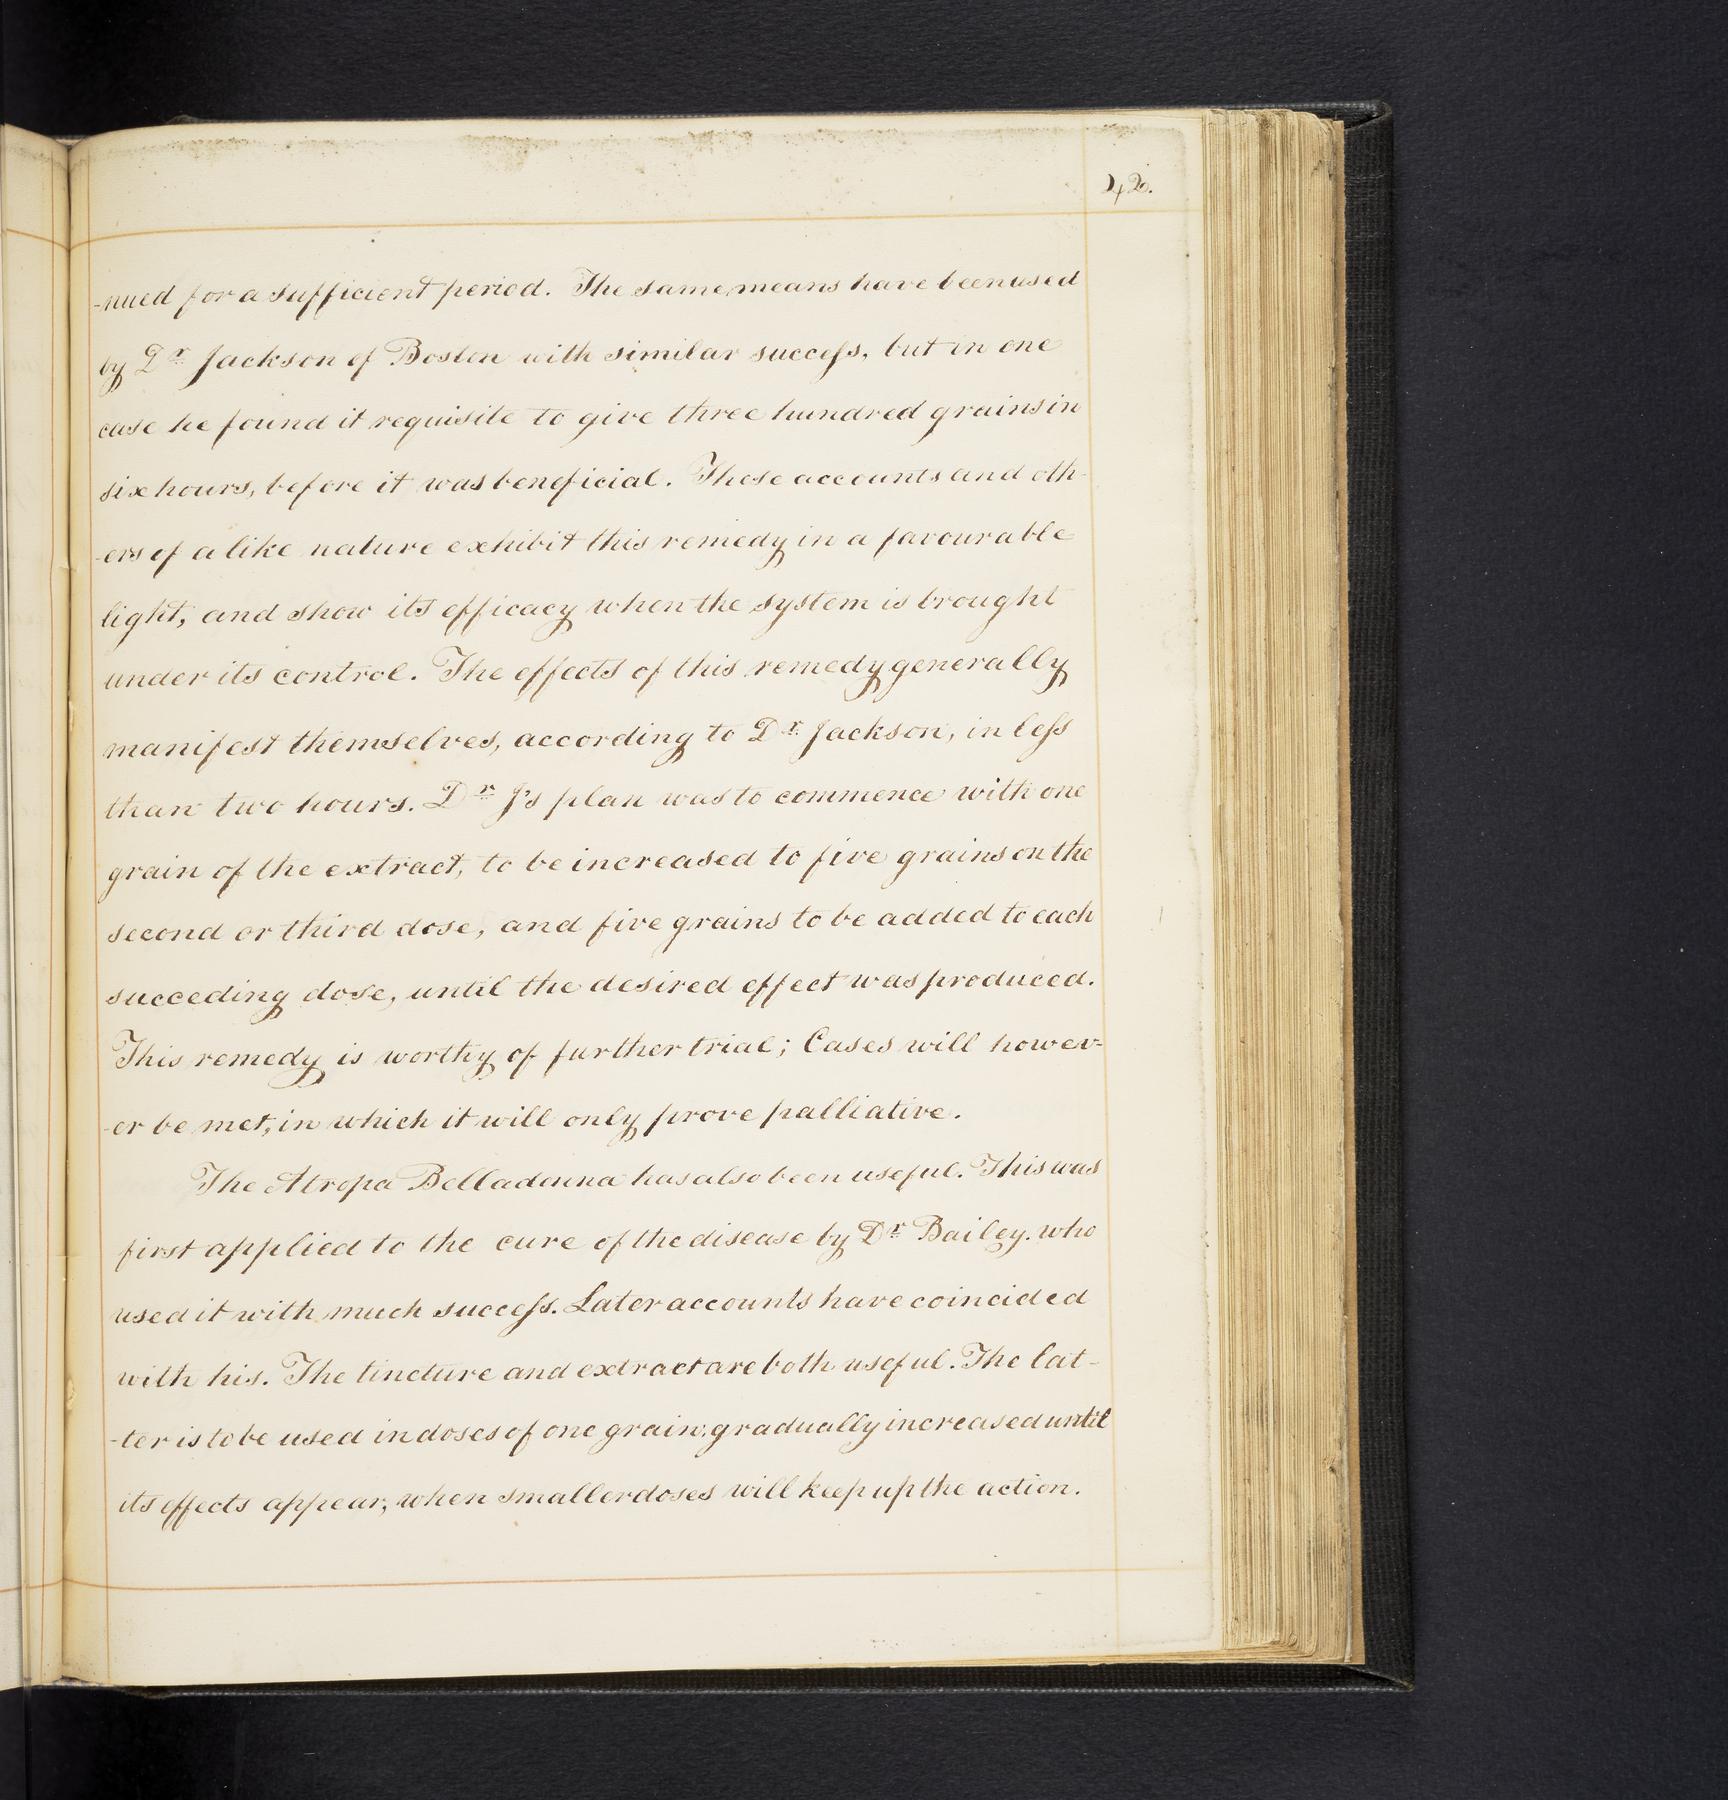 42.
-nued for a sufficient period. The same means have been used
by Dr Jackson of Boston with similar success, but in one
case he found it requisite to give three hundred grains in
six hours, before it was beneficial. These accounts and oth-
-ers of a like nature exhibit this remedy in a favourable
light, and show its efficacy when the system is brought
under its control. The effects of this remedy generally
manifest themselves, according to Dr Jackson, in less
than two hours. Dr J's plan was to commence with one
grain of the extract, to be increased to five grains on the
second or third dose, and five grains to be added to each
succeding dose, until the desired effect was produced.
This remedy is worthy of further trial; Cases will howev-
-er be met, in which it will only prove palliative.
The Atropa Belladonna has also been useful. This was
first applied to the cure of the disease by Dr Bailey. who
used it with much success. Later accounts have coincided
with his. The tincture and extract are both useful. The lat-
-ter is to be used in doses of one grain, gradually increased until
its effects appear, when smaller doses will keep up the action.